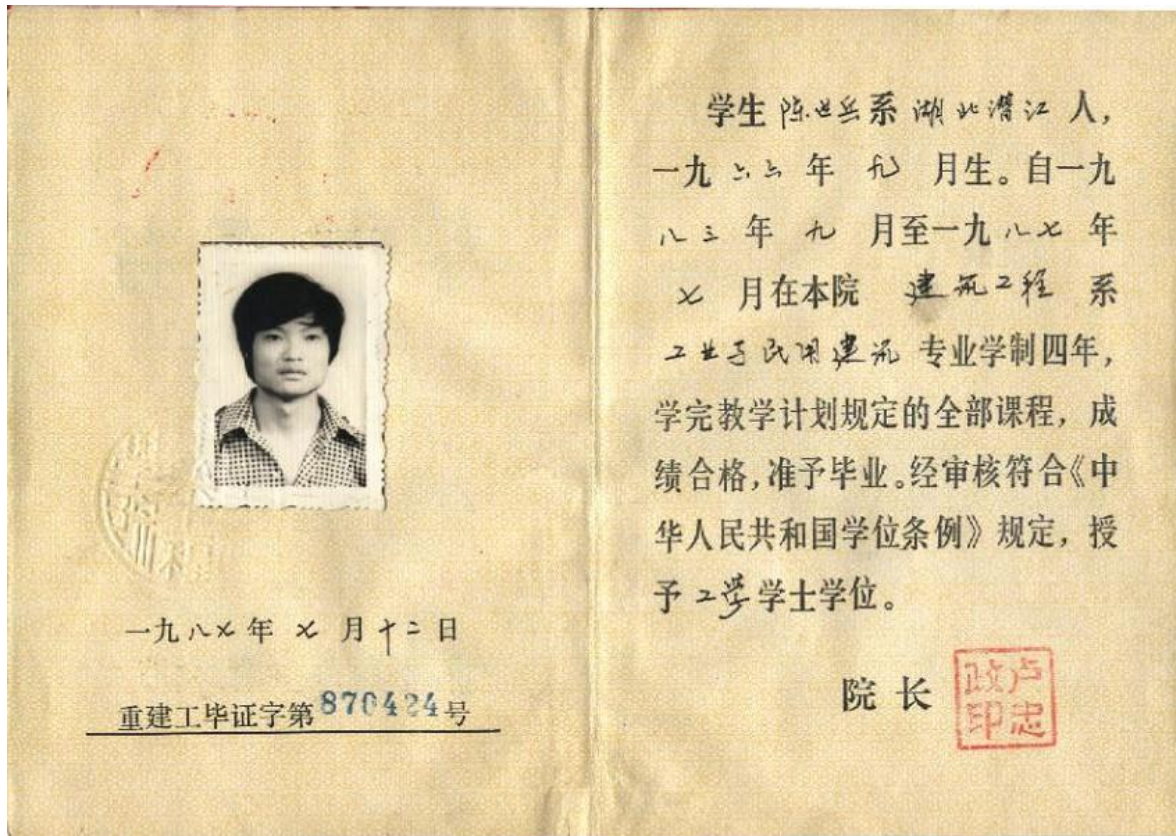 一九八七年七月十二日
重建工毕证字第870424号
学生陈世岳系湖北潜江人，
一九六六年九月生。自一九
八三年九月至一九八七年
七月在本院 建筑工程 系
工业与民用建筑专业学制四年，
学完教学计划规定的全部课程，成
绩合格，准予毕业。经审核符合《中
华人民共和国学位条例》规定，授
予工学学士学位。
院长
卢忠
政印